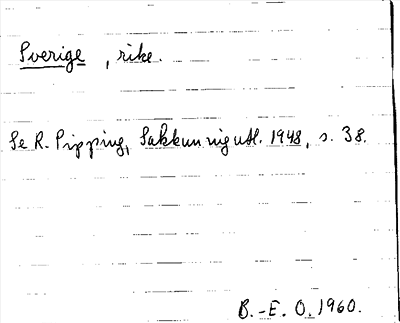 Sverige, rike.
Se R. Pipping, Sakkunnigutl. 1948, s. 38.
B.-E. O. 1960.